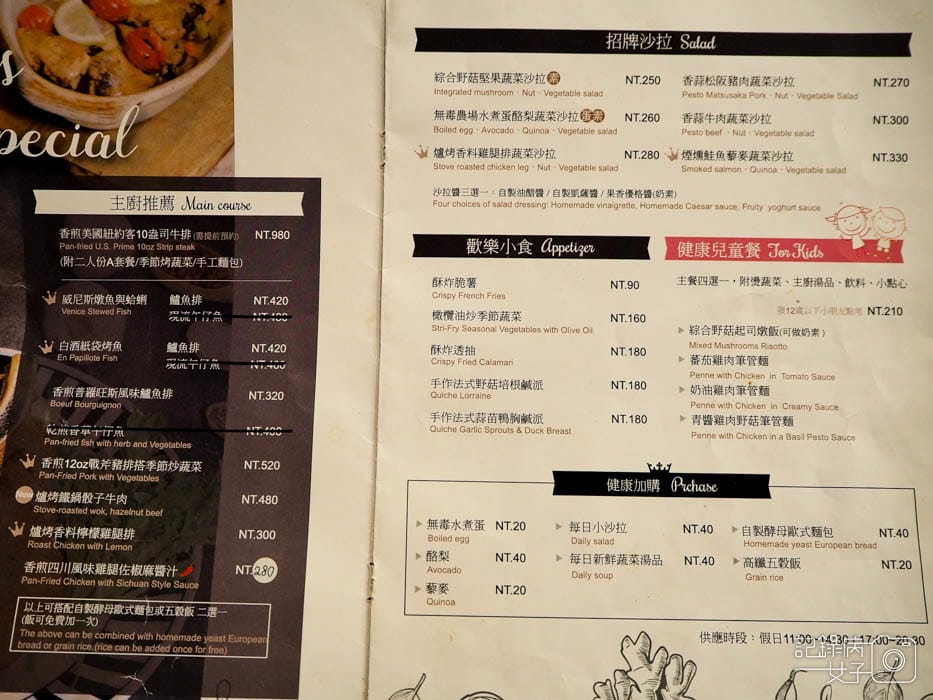 s
pecial
主廚推薦 Main course
香煎美國紐約客10盎司牛排(需提前預約) NT.980
Pan-fried U.S. Prime 10oz Strip steak
(附二人份A套餐/季節烤蔬菜/手工麵包)
威尼斯燉魚與蛤蜊 鱸魚排 NT.420
Venice Stewed Fish 現流午仔魚 NT.480
白酒紙袋烤魚 鱸魚排 NT.420
En Papillote Fish 現流午仔魚 NT.480
香煎普羅旺斯風味鱸魚排 NT.320
Boeuf Bourguignon
乾煎香草午仔魚 NT.480
Pan-fried fish with herb and Vegetables
香煎12oz戰斧豬排搭季節炒蔬菜 NT.520
Pan-Fried Pork with Vegetables
New 爐烤鐵鍋骰子牛肉 NT.480
Stove-roasted wok, hazelnut beef
爐烤香料檸檬雞腿排 NT.300
Roast Chicken with Lemon
香煎四川風味雞腿佐椒麻醬汁 NT.280
Pan-Fried Chicken with Sichuan Style Sauce
以上可搭配自製酵母歐式麵包或五穀飯 二選一
(飯可免費加一次)
The above can be combined with homemade yeast European
bread or grain rice.(rice can be added once for free)
招牌沙拉 Salad
綜合野菇堅果蔬菜沙拉 素 NT.250
Integrated mushroom、Nut、Vegetable salad
無毒農場水煮蛋酪梨蔬菜沙拉 蛋素 NT.260
Boiled egg、Avocado、Quinoa、Vegetable salad
爐烤香料雞腿排蔬菜沙拉 NT.280
Stove roasted chicken leg、Nut、Vegetable salad
香蒜松阪豬肉蔬菜沙拉 NT.270
Pesto Matsusaka Pork、Nut、Vegetable Salad
香蒜牛肉蔬菜沙拉 NT.300
Pesto beef、Nut、Vegetable salad
煙燻鮭魚藜麥蔬菜沙拉 NT.330
Smoked salmon、Quinoa、Vegetable salad
沙拉醬三選一：自製油醋醬 / 自製凱薩醬 / 果香優格醬(奶素)
Four choices of salad dressing: Homemade vinaigrette, Homemade Caesar sauce, Fruity yoghurt sauce
歡樂小食 Appetizer
酥炸脆薯 NT.90
Crispy French Fries
橄欖油炒季節蔬菜 NT.160
Stri-Fry Seasonal Vegetables with Olive Oil
酥炸透抽 NT.180
Crispy Fried Calamari
手作法式野菇培根鹹派 NT.180
Quiche Lorraine
手作法式蒜苗鴨胸鹹派 NT.180
Quiche Garlic Sprouts & Duck Breast
健康兒童餐 For Kids
主餐四選一，附燙蔬菜、主廚湯品、飲料、小點心
限12歲以下小朋友點用 NT.210
綜合野菇起司燉飯(可做奶素)
Mixed Mushrooms Risotto
蕃茄雞肉筆管麵
Penne with Chicken in Tomato Sauce
奶油雞肉筆管麵
Penne with Chicken in Creamy Sauce
青醬雞肉野菇筆管麵
Penne with Chicken in a Basil Pesto Sauce
健康加購 Prchase
無毒水煮蛋 NT.20
Boiled egg
酪梨 NT.40
Avocado
藜麥 NT.20
Quinoa
每日小沙拉 NT.40
Daily salad
每日新鮮蔬菜湯品 NT.40
Daily soup
自製酵母歐式麵包 NT.40
Homemade yeast European bread
高纖五穀飯 NT.20
Grain rice
供應時段：假日11:00~14:30 / 17:00~20:30
記錄病
女子